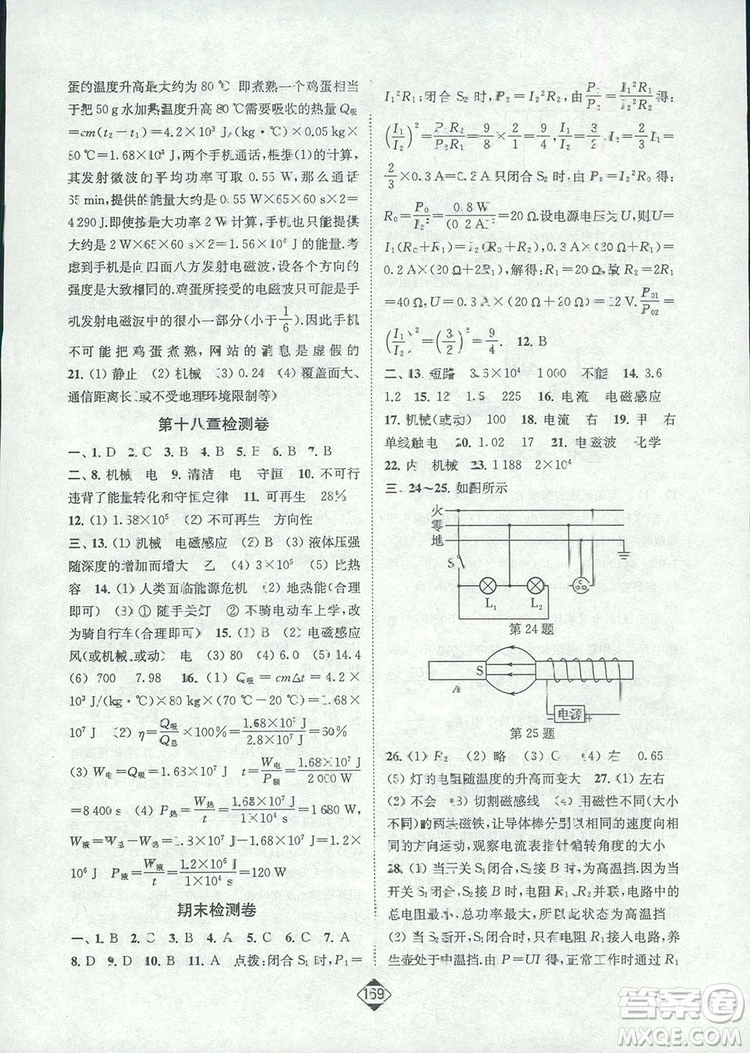 蛋的温度升高最大约为 80 ℃ 即煮熟一个鸡蛋大约
于把 50 g 水加热温度升高 80 ℃需要吸收的热量 Q吸
=cm(t₂-t₁)=4.2×10³ J/(kg·℃)×0.05 kg
×80 ℃=1.68×10⁴ J,两个手机通话,根据(1)的计算,
其发射微波的平均功率可取 0.55 W,那么通话
65 min,提供的能量大约为 0.55 W×65×60 s=2
4 290 J;即使按最大功率 2 W 计算,手机也只能提供
大约是 2 W×65×60 s=1.56×10⁴ J 的能量。考
虑到手机是向四面八方发射电磁波,在各个方向的
强度是大致相同的.鸡蛋所接受的电磁波只能占手
机发射电磁波中的很小一部分(小于1/6),因此手机
不可能把鸡蛋煮熟,网站的消息是虚假的
21. (1) 静止 (2) 机械 (3) 0.24 (4) 覆盖面大、
通信距离长(或不受地理环境限制等)
第十八章检测卷
一、1. D 2. C 3. A 4. B 5. C 6. D 7. B
二、8. 机械 电 9. 清洁 电 守恒 10. 不可行
违背了能量转化和守恒定律 11. 可再生 28%
12. (1) 1.68×10⁵ (2) 不可再生 方向性
三、13. (1) 机械 电磁感应 (2) 热 (3) 液体压强
随深度的增加而增大 乙 (4) 3×10⁵ (5) 比热
容 14. (1) 人类面临能源危机 (2) 地热能(合理
即可) (3) ① 随手关灯 ② 不骑电动车上学,改
为骑自行车(合理即可) 15. (1) (2) 电磁感应
风(或机械,或动) (3) 电 (4) B (5) 14.4
(6) 700 7.98 16. (1) Q吸=cmΔt=4.2×
10³ J/(kg·℃)×80 kg×(70 ℃-20 ℃)=1.68×
10⁷ J (2) η=Q吸/Q总×100%=1.68×10⁷ J/2.8×10⁷ J=60%
(3) W电=Q吸=1.68×10⁷ J t=W电/P额=1.68×10⁷ J/2 000 W
=8 400 s (4) P热=W热/t=1.68×10⁷ J/1×10⁴ s=1 680 W
W液=W总-W热=1.8×10⁷ J-1.68×10⁷ J=1.2×
10⁶ J P液=W液/t=1.2×10⁶ J/1×10⁴ s=120 W
期末检测卷
一、1. B 2. D 3. C 4. D 5. B 6. C 7. A
8. D 9. D 10. B 11. A 点拨:闭合 S₁ 时,P₁=
I₁²R₁;闭合 S₂ 时,P₂=I₂²R₂,由P₁/P₂=I₁²R₁/I₂²R₂得:
(I₁/I₂)²=P₁R₂/P₂R₁=9/8×2/1=9/4,I₁/I₂=3/2 I₂=2/3I₁=
2/3×0.3 A=0.2 A 只闭合 S₂ 时,P₀=I₂²R₀ 得:
R₀=P₀/I₂²=0.8 W/(0.2 A)²=20 Ω.设电源电压为 U,则
I₁(R₀+R₁)=I₂(R₀+R₂),0.3 A×(20 Ω+R₁)=
0.2 A×(20 Ω+R₂),解得:R₁=20 Ω,R₂=2R₁=
40 Ω,U=0.3 A×(20 Ω+20 Ω)=12 V.P₀₁/P₀₂=
(I₁/I₂)²=(3/2)²=9/4 12. B
二、13. 短路 3.6×10⁴ 1 000 不能 14. 3.6
1.2 15. 125 9 16. 电流 电磁感应
17. 机械(或动) 右 18. 电流 19. 甲 右
单线触电 20. 1.02 17 21. 电磁波 化学
22. 内 机械 23. 1 188 2×10⁴
三、24~25. 如图所示
火
零
地
S
L₁ L₂
第 24 题
S
A
+ 电源 -
第 25 题
26. (1) R₂ (2) 略 (3) 小 (4) 右 0.65
(5) 灯的电阻随温度的升高而变大 27. (1) 左右
(2) 不会 (3) 切割磁感线 (4) 用磁性不同(或大小
不同)的两块磁铁,让导体棒分别以相同的速度向相
同的方向运动,观察电流表指针偏转角度的大小
28. (1) 当开关 S₁ 闭合,S₂ 接 B 时,为高温挡.因为当
开关 S₁ 闭合,S₂ 接 B 时,电阻 R₁ 和 R₂ 并联,电路中的
总电阻最小,总功率最大,所以此状态为高温挡
(2) 当 S₂ 断开,S₁ 闭合时,只有电阻 R₁ 接入电路,养
生壶处于中温挡.由 P=UI 得,正常工作时通过 R₁
169
答案圈
MXQE.COM